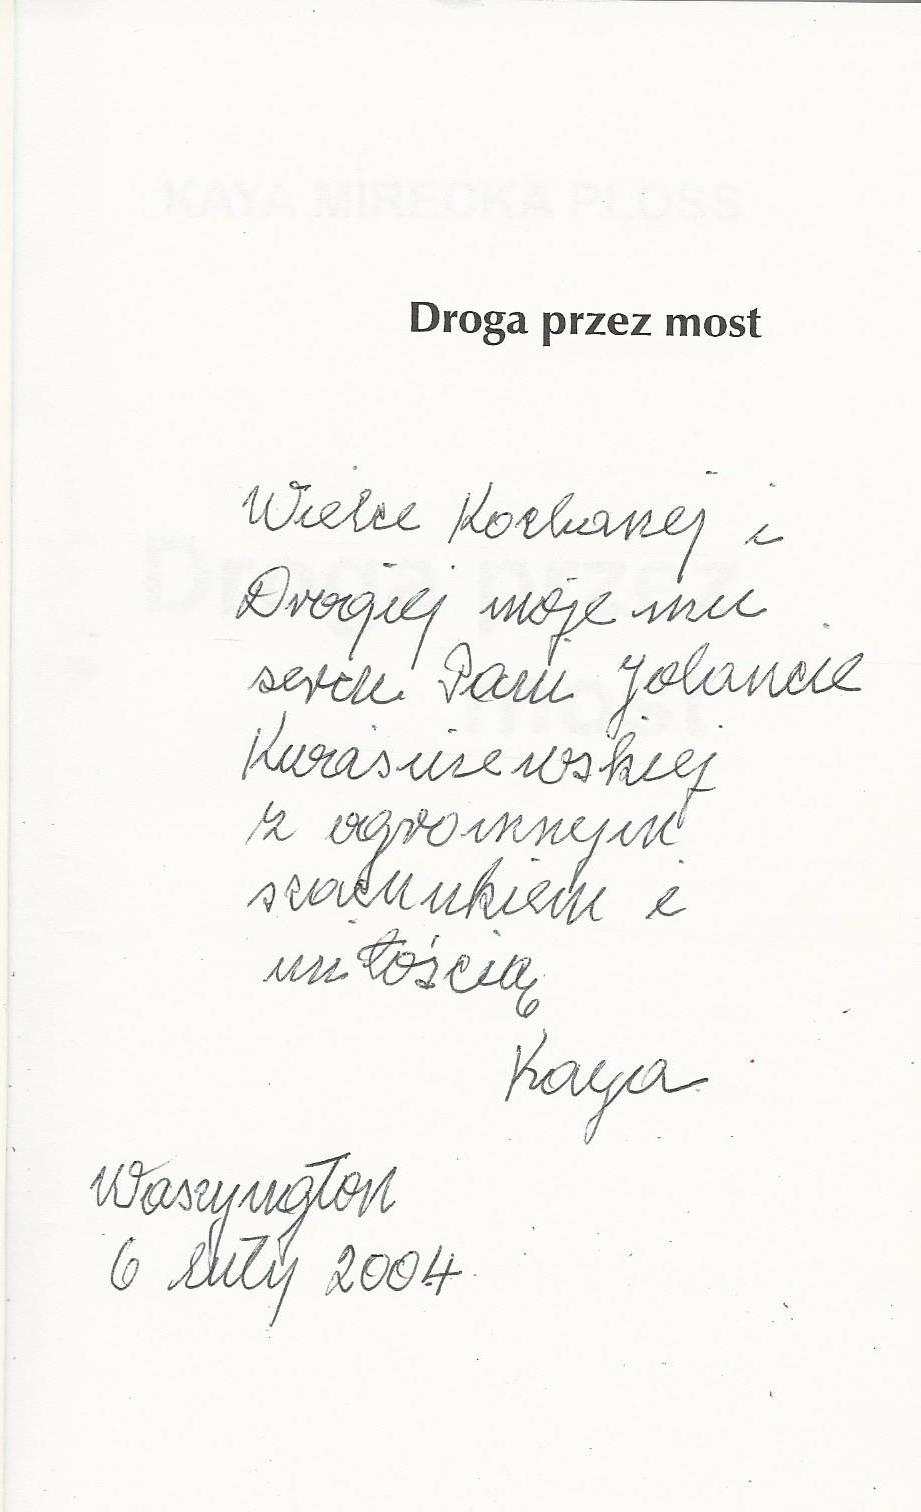 KAYA MIRECKA PLOSS
Droga przez most
Wielce Kochanej i
Drogiej moje mu
sercu Pani Jolancie
z ogromnym
szacunkiem i
miłością
Kaya
Waszyngton
6 luty 2004